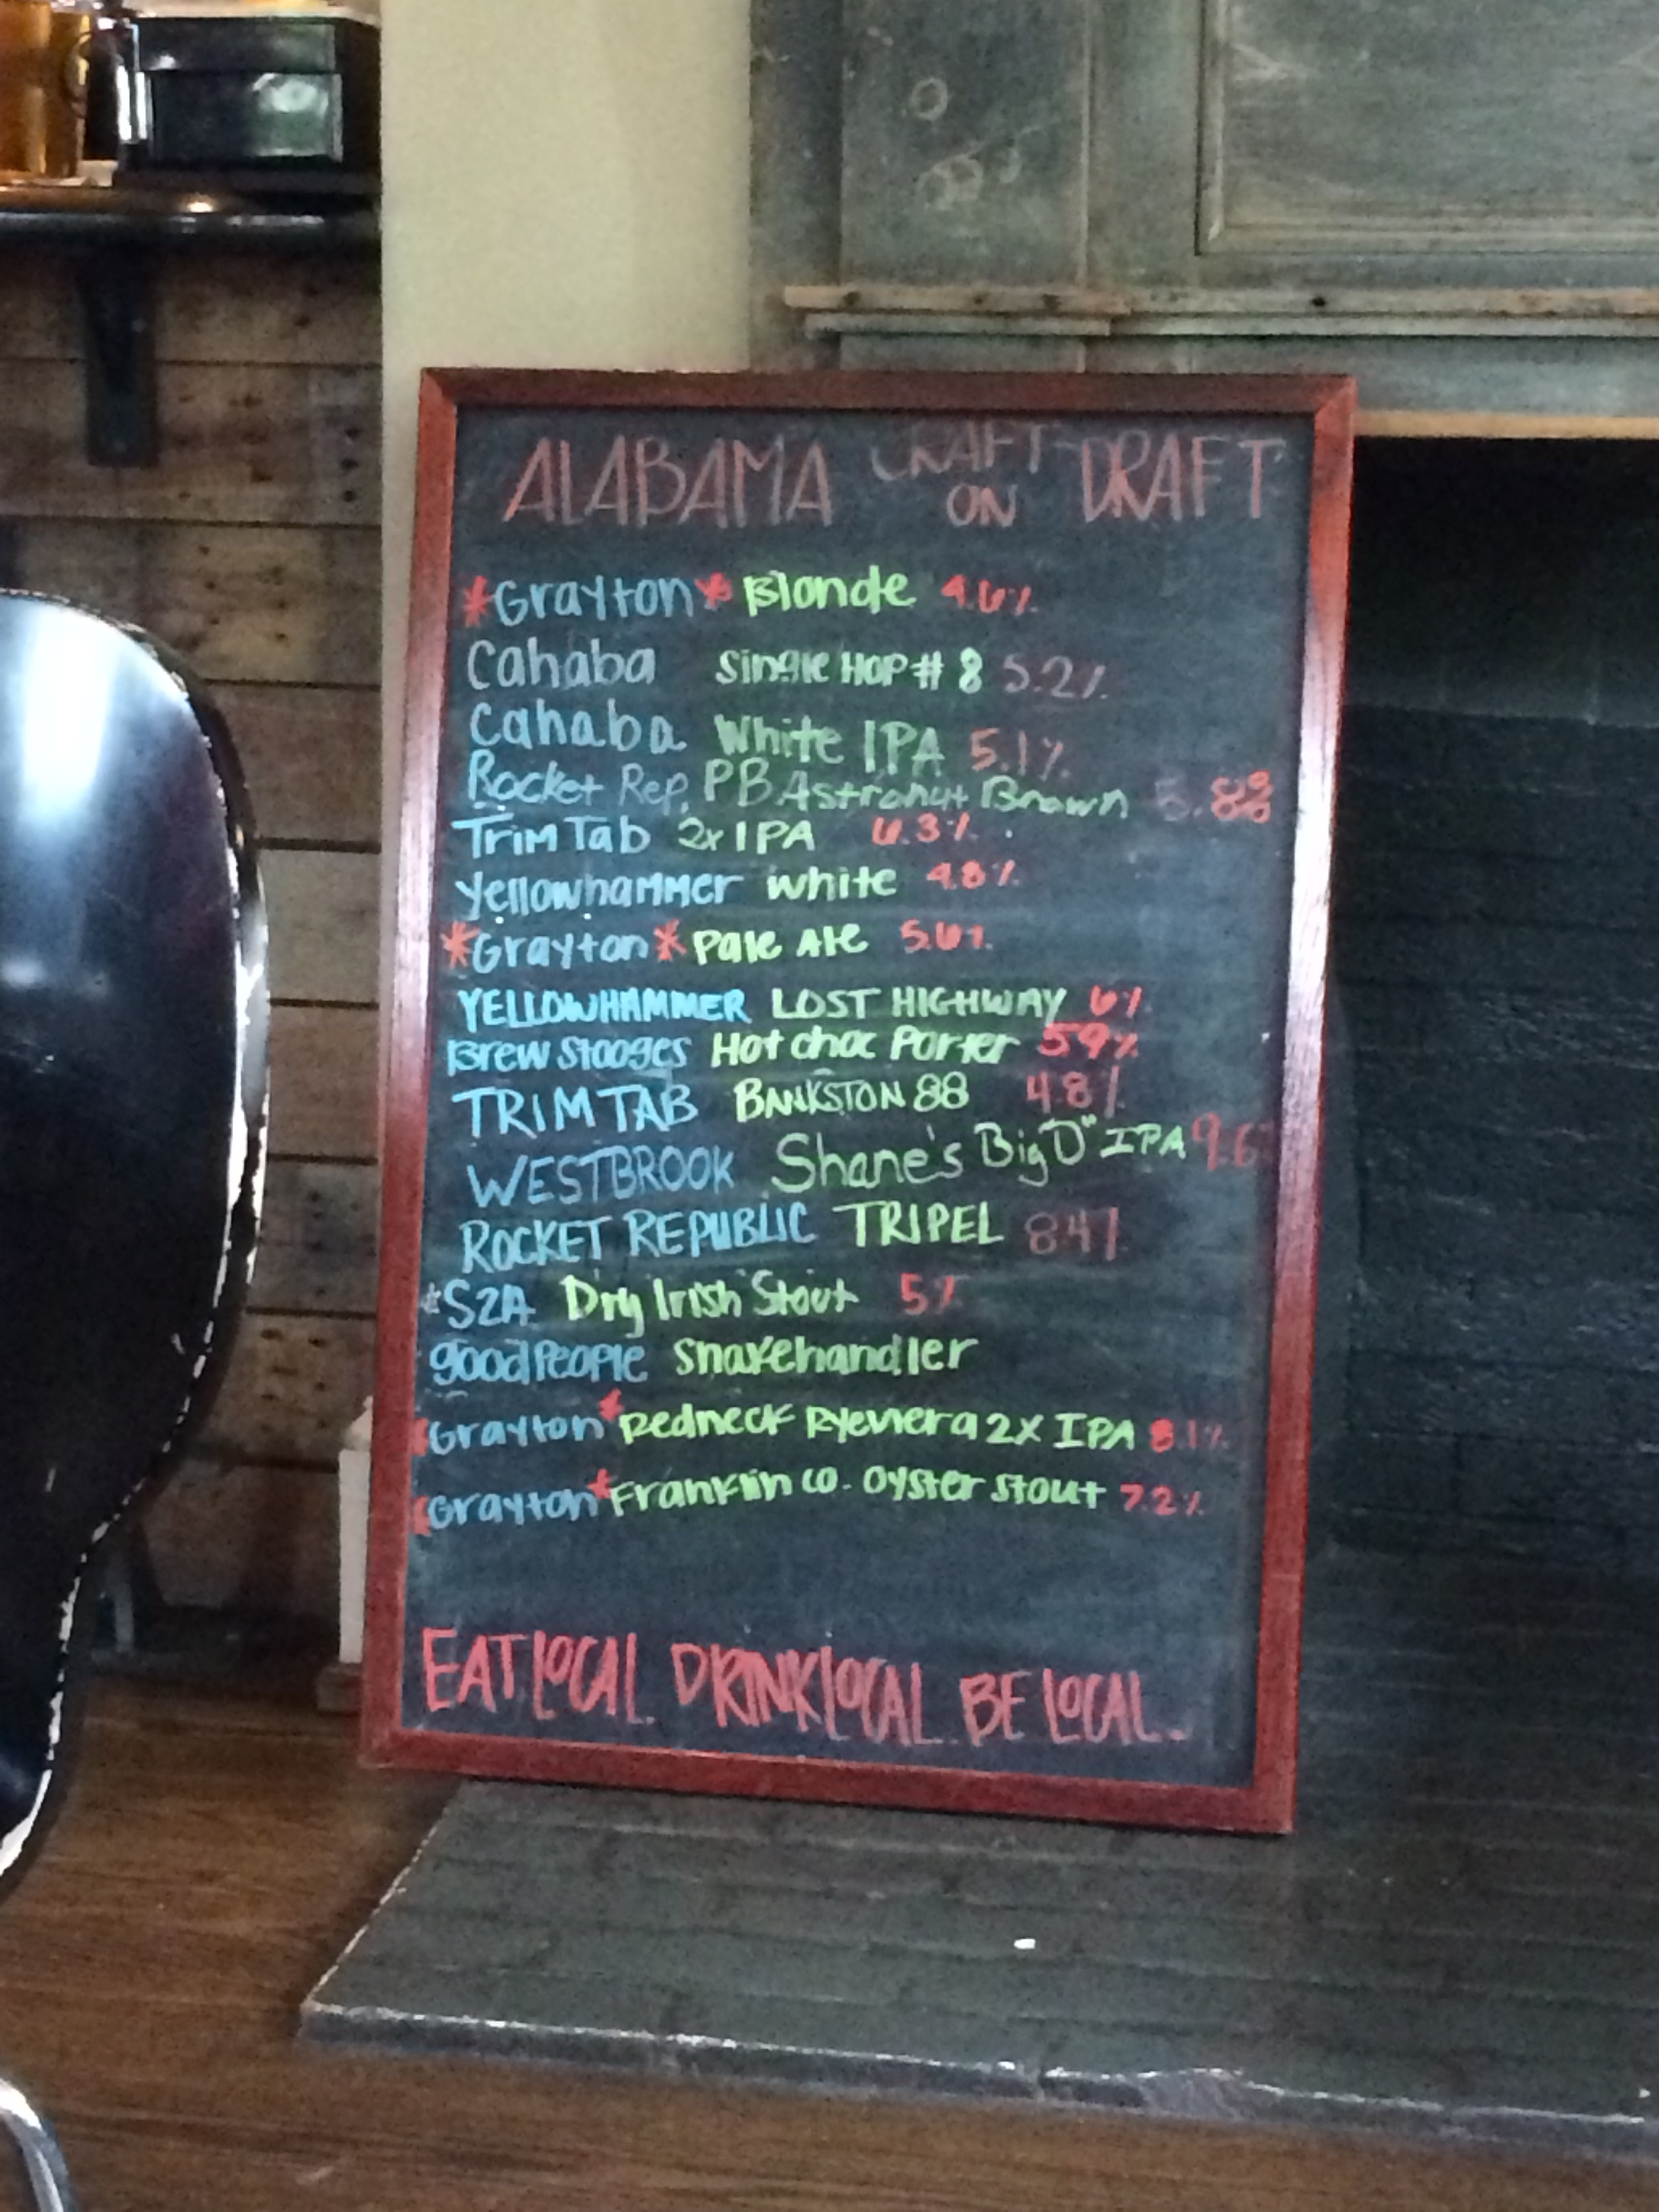 ALABAMA CRAFT ON DRAFT
*Grayton* Blonde 4.6%
Cahaba Single HOP # 8 5.2%
Cahaba White IPA 5.1%
Rocket Rep. PB Astronut Brown 5.8%
Trim Tab 2x IPA 6.3%
Yellowhammer white 4.8%
*Grayton* Pale Ale 5.6%
YELLOWHAMMER LOST HIGHWAY 6%
Brew Stooges Hot choc Porter 5.9%
TRIM TAB BANKSTON 88 4.8%
WESTBROOK Shane's Big "D" IPA 9.6
ROCKET REPUBLIC TRIPEL 8.4%
*S2A Dry Irish Stout 5%
good People Snakehandler
*Grayton* Redneck Ryeviera 2X IPA 8.1%
*Grayton* Franklin Co. Oyster Stout 7.2%
EAT LOCAL. DRINK LOCAL. BE LOCAL.